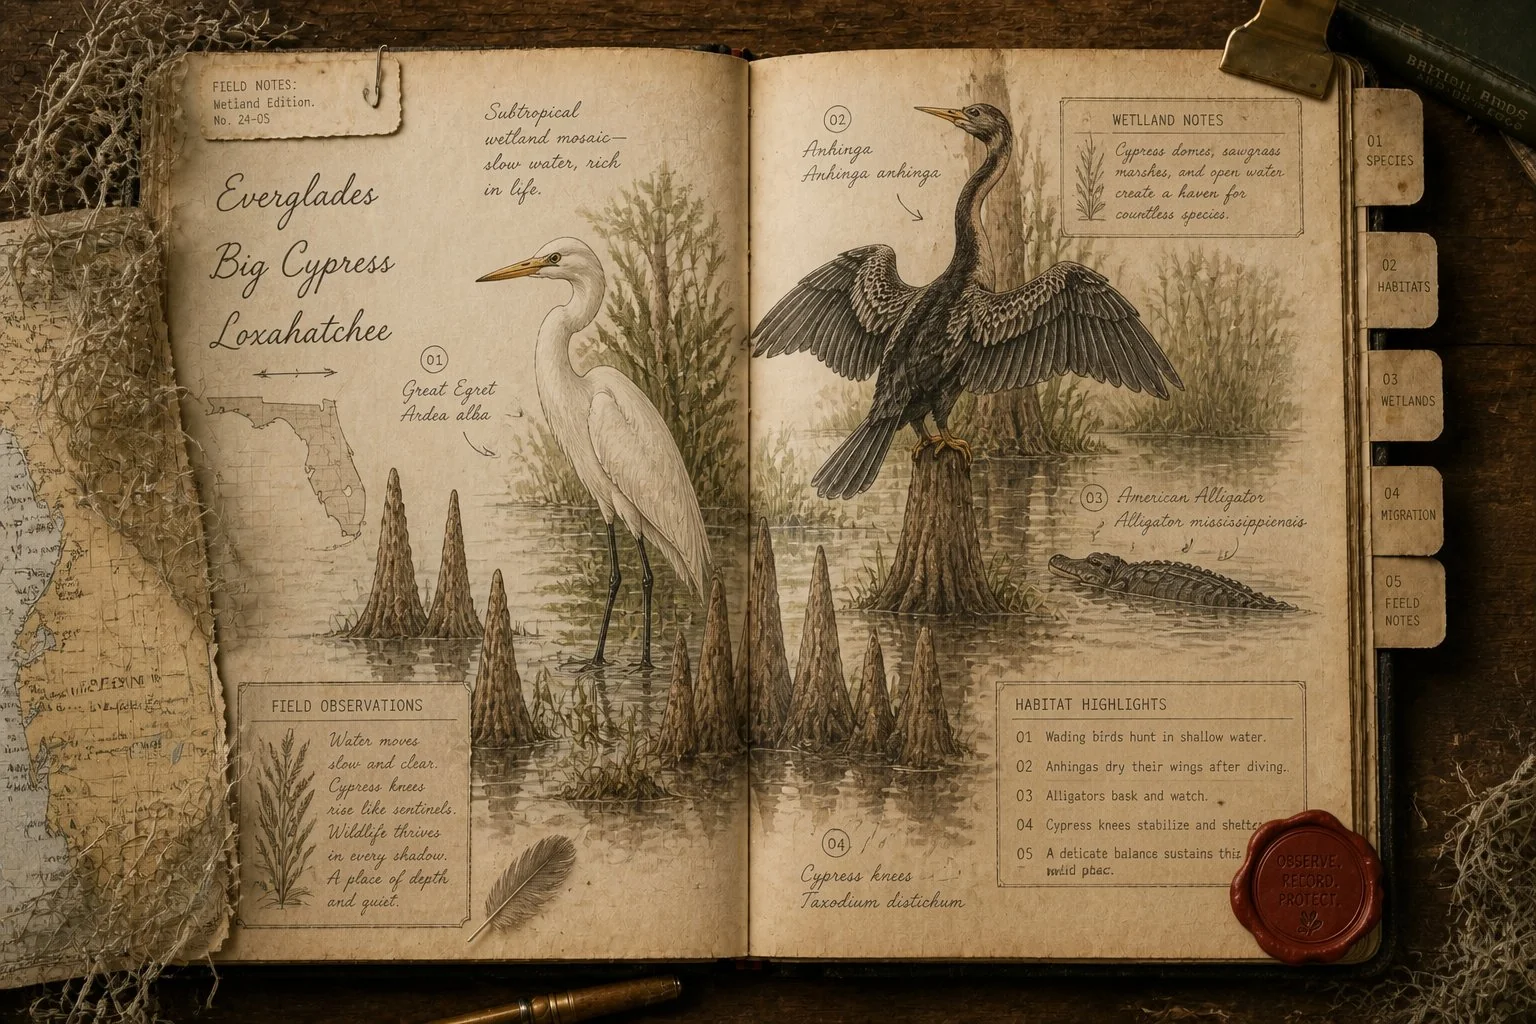 FIELD NOTES:
Wetland Edition.
No. 24-OS
Subtropical
wetland mosaic—
slow water, rich
in life.
Everglades
Big Cypress
Loxahatchee
01
Great Egret
Ardea alba
FIELD OBSERVATIONS
Water moves
slow and clear.
Cypress knees
rise like sentinels.
Wildlife thrives
in every shadow.
A place of depth
and quiet.
02
Anhinga
Anhinga anhinga
WETLLAND NOTES
Cypress domes, sawgrass
marshes, and open water
create a haven for
countless species.
03 American Alligator
Alligator mississippiensis
04
Cypress knees
Taxodium distichum
HABITAT HIGHLIGHTS
01 Wading birds hunt in shallow water.
02 Anhingas dry their wings after diving.
03 Alligators bask and watch.
04 Cypress knees stabilize and shelter
05 A delicate balance sustains this
OBSERVE.
RECORD.
PROTECT.
01
SPECIES
02
HABITATS
03
WETLANDS
04
MIGRATION
05
FIELD
NOTES
BRITISH BIRDS